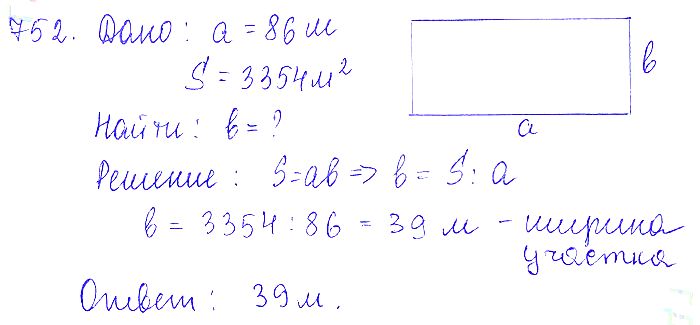 752. Дано: a = 86 м
S = 3354 м²
b
Найти: b = ?
a
Решение: S=ab => b = S : a
b = 3354 : 86 = 39 м - ширина
участка
Ответ: 39 м.